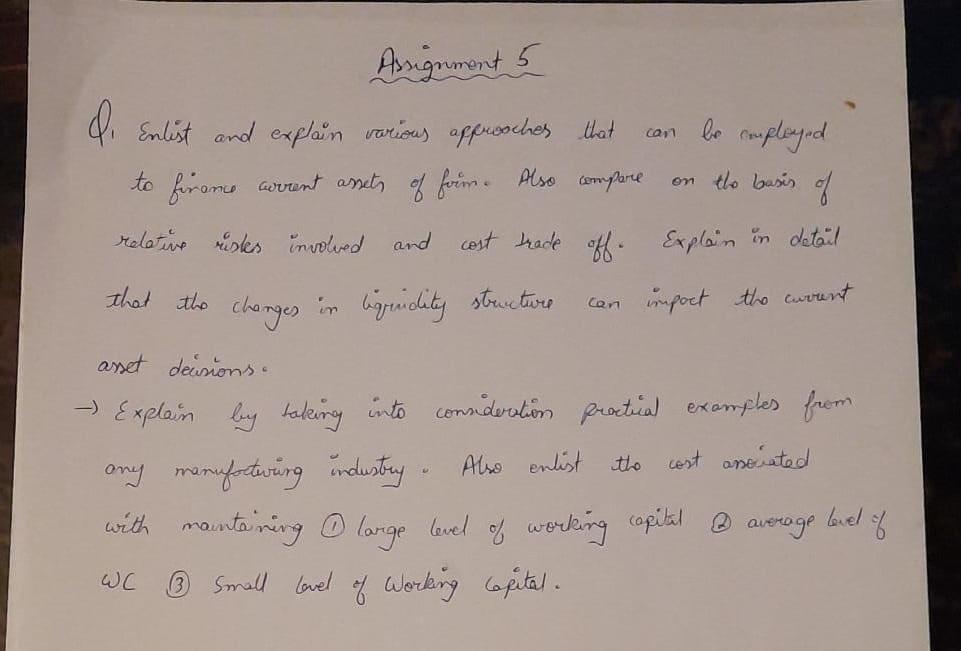 Assignment 5
Q. Enlist and explain various approaches that can be employed
to finance current assets of firm. Also compare on the basis of
relative risks involved and cost trade off. Explain in detail
that the changes in liquidity structure can impact the current
asset decisions.
→ Explain by taking into consideration practical examples from
any manufacturing industry. Also enlist the cost associated
with maintaining ① large level of working capital ② average level of
WC ③ Small level of Working Capital.